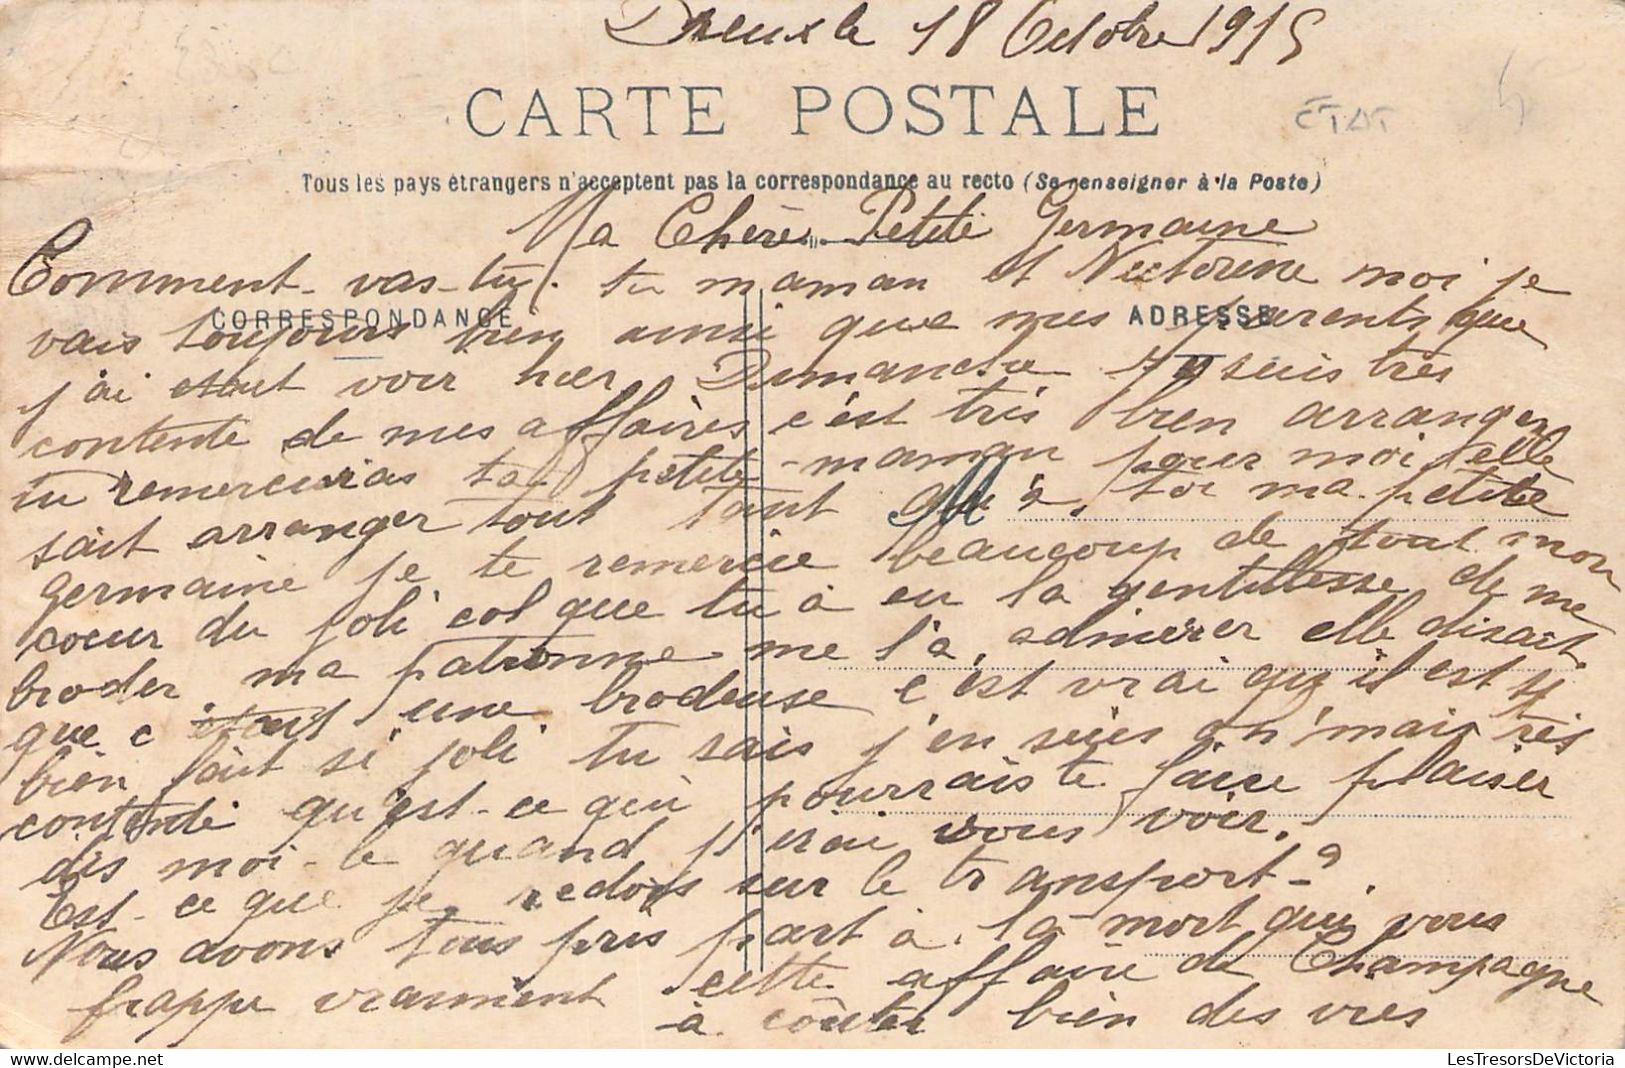 Dreux le 18 Octobre 1915
CARTE POSTALE
ETAT
Tous les pays étrangers n'acceptent pas la correspondance au recto (Se renseigner à la Poste)
Ma Chère Petite Germaine
Comment vas-tu, tu maman et moi je
CORRESPONDANCE
ADRESSE
vais toujours bien ainsi que mes parents que
j'ai etait voir hier Dimanche je suis très
contente de mes affaires c'est très bien arranger
tu remercieras ta petite maman pour moi elle
sait arranger tout tant qu'à toi ma petite
Germaine je te remercie beaucoup de tout mon
coeur du joli col que tu à eu la gentillesse de me
broder ma patronne me l'a admirer elle disait
que c'etait une brodeuse c'est vrai qu'il est si
bien fait si joli tu sais j'en suis très
contente qu'est-ce qui pourrais te faire plaisir
dis moi-le quand j'irai vous voir.
Est-ce que je redois sur le transport?
Nous avons tous pris part à la mort qui vous
frappe vraiment cette affaire de Champagne
à coûter bien des vies
LesTresorsDeVictoria
www.delcampe.net